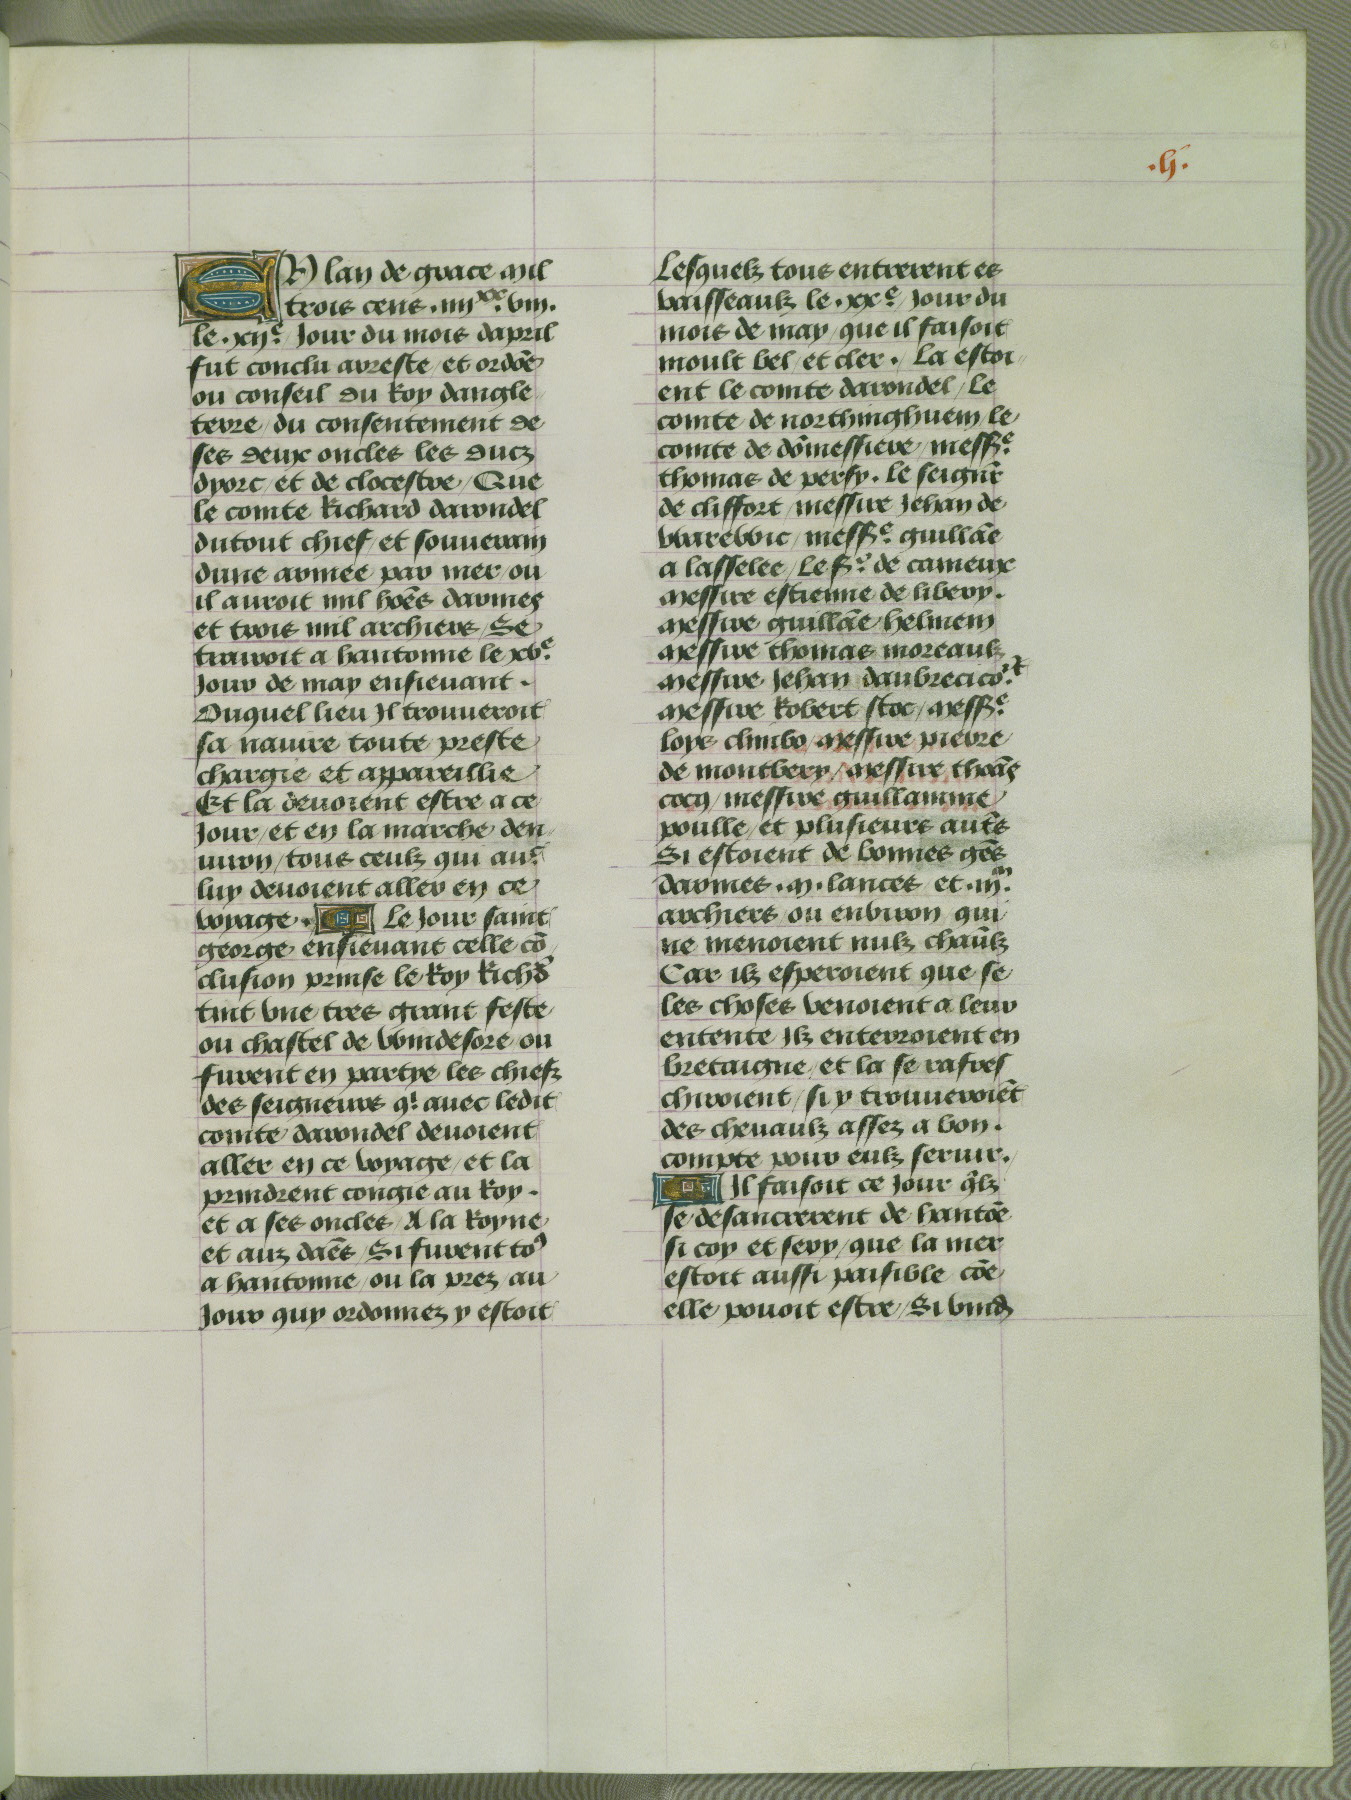 .lj.
EN lan de grace mil
trois cens .iiijxx. viij.
le .xije. Jour du mois dapril
fut conclu arreste / et ordōe
ou conseil du Roy dangle
terre / du consentement de
ses deux oncles les ducz
dyorc / et de clocestre / Que
le comte Richard darondel
dutout chief / et souuerain
dune armee par mer / ou
il auroit mil hōes darmes
et trois mil archiers / Se
trairoit a hantonne le xve.
Jour de may ensieuant .
Ouquel lieu Il trouueroit
sa nauire toute preste
chargie et appareillie
Et la deuoient estre a ce
Jour / et en la marche den
uiron / tous ceulz qui auec
luy deuoient aller en ce
voyage . Le Jour saint
george ensieuant celle cō
clusion prinse le Roy Richd
tint vne tres grant feste
ou chastel de Windesore ou
furent en partye les chiefz
des seigneurs qi auec ledit
comte darondel deuoient
aller en ce voyage / et la
prindrent congie au Roy .
et a ses oncles / A la Royne
et auz dāes / Si furent to9
a hantonne / ou la prez au
Jour quy ordonnez y estoit
Lesquelz tous entrerent es
vaisseaulz le .xxe. Jour du
mois de may / que il faisoit
moult bel / et cler . / La estoi
ent le comte darondel / Le
comte de northinghuem le
comte de dōmessiere / messe.
thomas de persy . Le seignr
de cliffort / messire Jehan de
Warewic / messe. guillāe
a lasselee / Le sr. de cameux
messire estienne de libery .
messire guillāe helmem
messire thomas moreaulz
messire Jehan daubrecicort
messire Robert stoc / messe.
loys climbo / messire pierre
de montbery / messire thōas
cocq / messire guillamme
poulle / et plusieurs autēs
Si estoient de bonnes gēs
darmes .m. lances et .iijm.
archiers ou enbiron qui
ne menoient nulz chaūlz
Car ilz esperoient que se
les choses venoient a leur
entente Ilz enterroient en
bretaigne / et la se rafres
chiroient / si y trouueroiēt
des cheuaulz assez a bon .
compte pour eulz seruir .
Il faisoit ce Jour qīlz
se desancrerent de hantōe
si coy et sery / que la mer
estoit aussi paisible cōe
elle pouoit estre / Si vindr